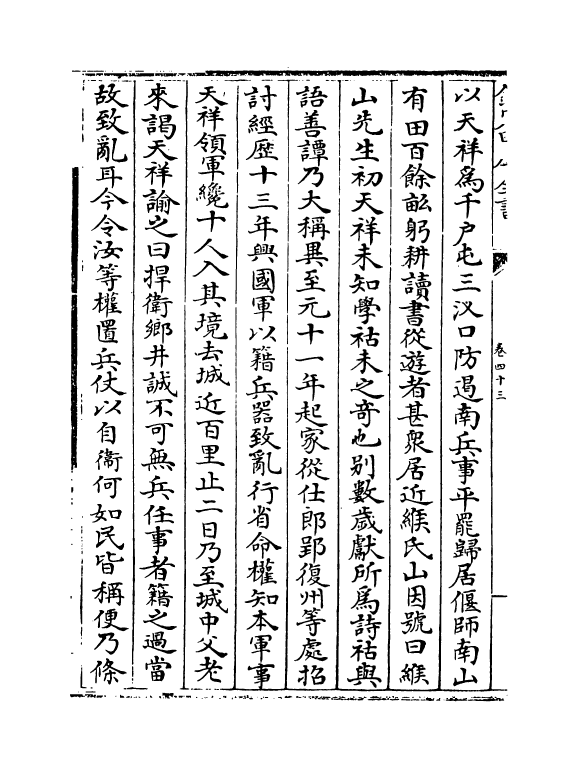 以天祥為千户屯三汊口防遏南兵事平罷歸居偃師南山
有田百餘畝躬耕讀書從遊者甚衆居近緱氏山因號曰緱
山先生初天祥未知學祜未之竒也别數歲獻所為詩祜與
語善譚乃大稱異至元十一年起家從仕郎郢復州等處招
討經歷十三年興國軍以籍兵器致亂行省命權知本軍事
天祥領軍纔十人入其境去城近百里止二日乃至城中父老
來謁天祥諭之曰捍衛鄉井誠不可無兵任事者籍之過當
故致亂耳今令汝等權置兵仗以自衞何如民皆稱便乃條
卷四十三